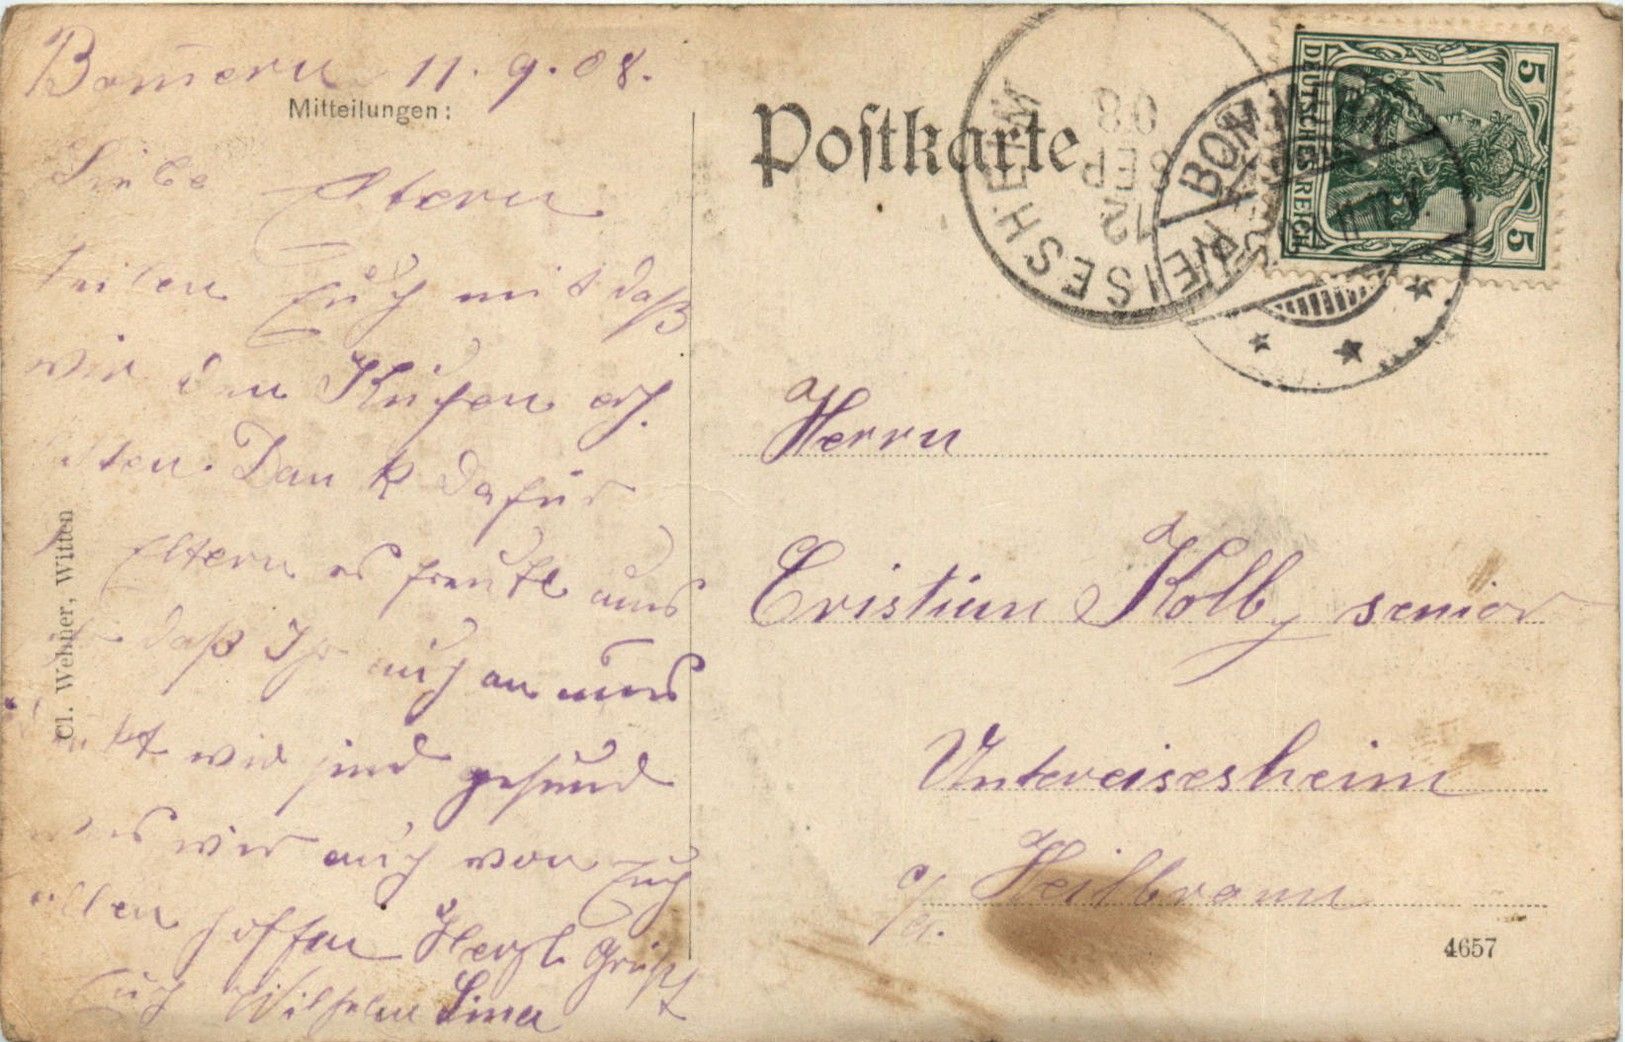 Bom̅ern 11.9.08.
Mitteilungen:
Liebe Eltern
teilen Euch mit daß
wir den Kuchen erh.
alten. Dank dafür
Eltern es freute uns
daß Ihr auch an uns
denkt wir sind gesund
was wir auch von Euch
allen hoffen Herzl Grüßt
Euch Wilhelm Lina
Cl. Wehner, Witten
Postkarte
BOMMERN
UNTEREISESHEIM
12 SEP 08
DEUTSCHES REICH
5 5
Herrn
Cristian Kolb, senior
Untereisesheim
a/N. Heilbronn
4657